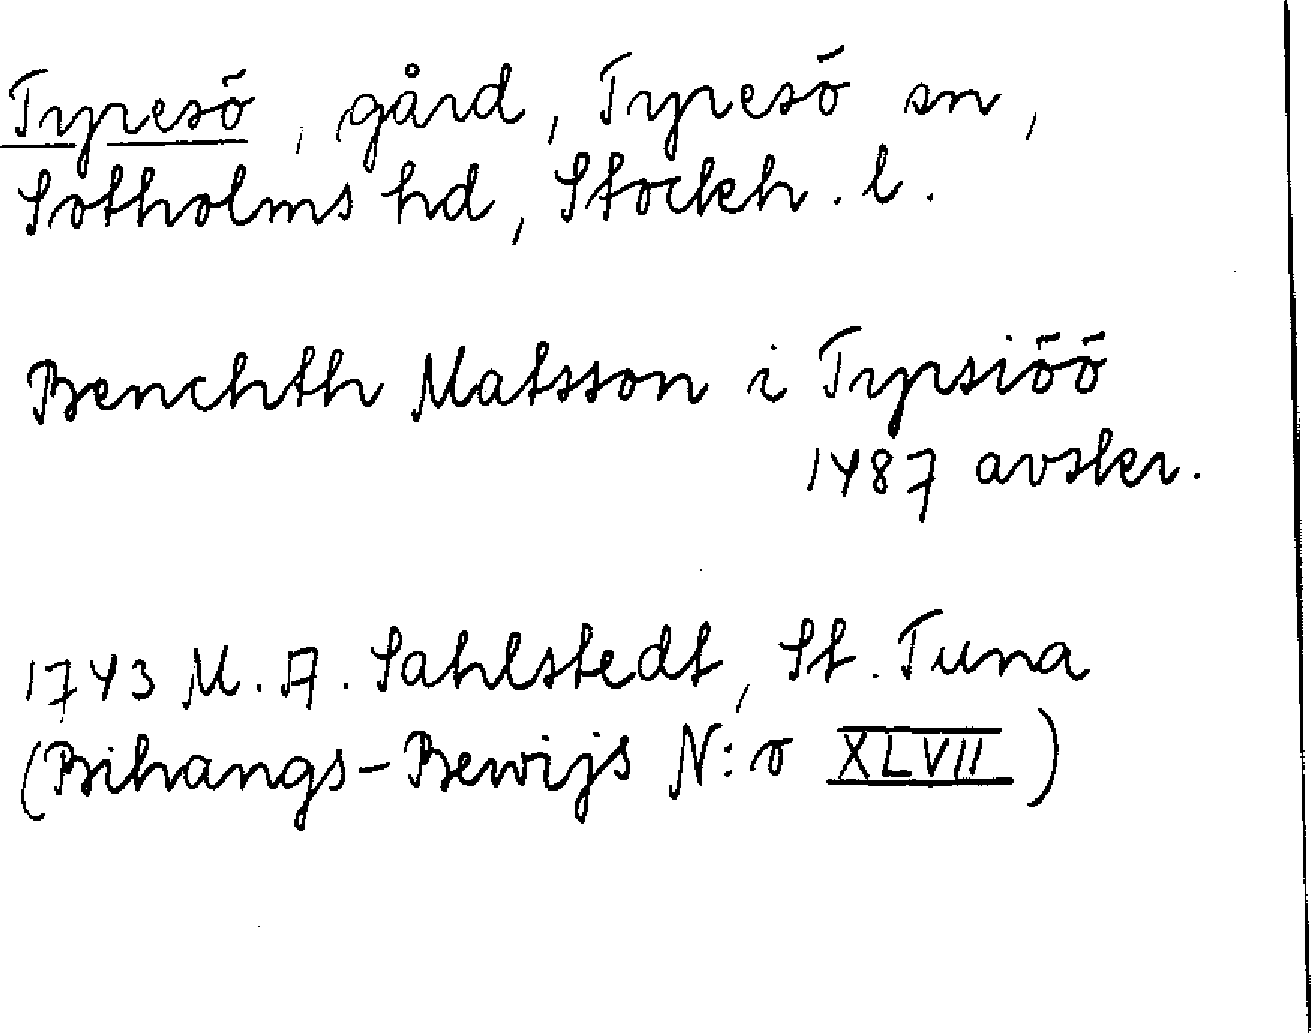 Tyresö, gård, Tyresö sn,
Sotholms hd, Stockh. l.
Benchth Matsson i Tyrsiöö
1487 avskr.
1743 M. A. Sahlstedt, St. Tuna
(Bihangs-Bewijs N:o XLVII)